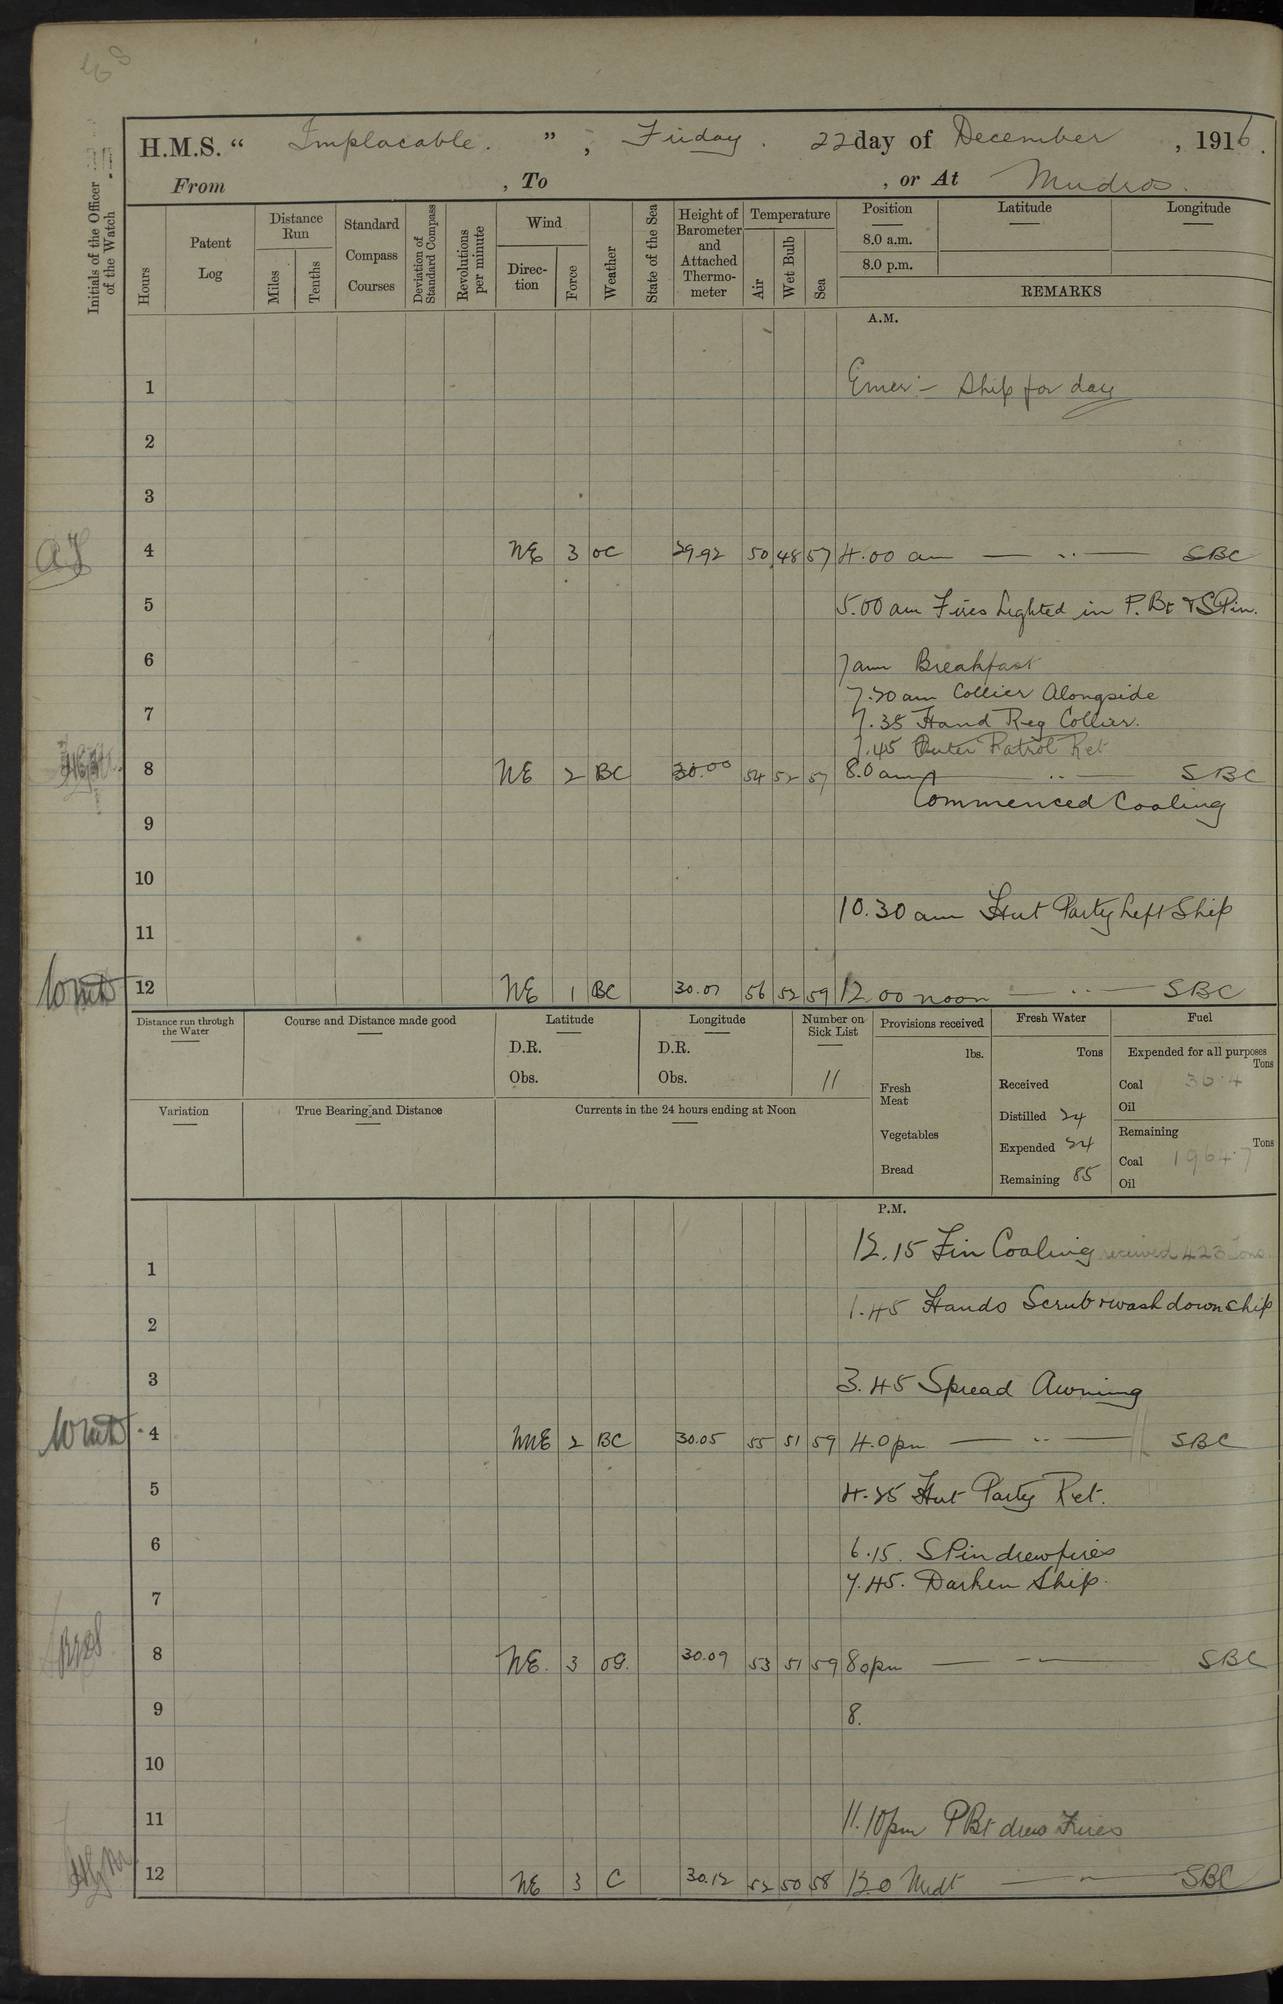 H.M.S. “ Implacable. ” , Friday. 22 day of December , 1916.
From , To , or At Mudros.
Initials of the Officer of the Watch
Hours
Patent Log
Distance Run
Miles
Tenths
Standard Compass Courses
Deviation of Standard Compass
Revolutions per minute
Wind
Direction
Force
Weather
State of the Sea
Height of Barometer and Attached Thermometer
Temperature
Air
Wet Bulb
Sea
Position
8.0 a.m.
8.0 p.m.
Latitude
Longitude
REMARKS
A.M.
1 Emer:– Ship for day
2
3
4 NE 3 OC 29.92 50 48 57 4.00 am — .. — SBC
5 5.00 am Fires Lighted in P. Bt & SPin.
6 7 am Breakfast
7.20 am Collier Alongside
7 7.35 Hand Reg Collier.
7.45 Outer Patrol Ret
8 NE 2 BC 30.00 54 52 57 8.0 am — .. — SBC
Commenced Coaling
9
10
10.30 am Hut Party Left Ship
11
12 NE 1 BC 30.07 56 52 59 12.00 noon — .. — SBC
Distance run through the Water
Course and Distance made good
Latitude
D.R.
Obs.
Longitude
D.R.
Obs.
Number on Sick List
11
Provisions received
lbs.
Fresh Meat
Vegetables
Bread
Fresh Water
Tons
Received
Distilled 24
Expended 24
Remaining 85
Fuel
Expended for all purposes
Tons
Coal 36.4
Oil
Remaining
Tons
Coal 1964.7
Oil
Variation
True Bearing and Distance
Currents in the 24 hours ending at Noon
P.M.
12.15 Fin Coaling received 423 Tons.
1
1.45 Hands Scrub & wash down ship
2
3 3.45 Spread Awning
4 NNE 2 BC 30.05 55 51 59 4.0 pm — .. — SBC
5 4.25 Hut Party Ret.
6 6.15. SPin drew fires
7.45. Darken Ship.
7
8 NE. 3 OG. 30.09 53 51 59 8 0 pm — .. — SBC
9 8.
10
11 11.10 pm PBt drew Fires
12 NE 3 C 30.12 52 50 58 12.0 Midt — .. — SBC